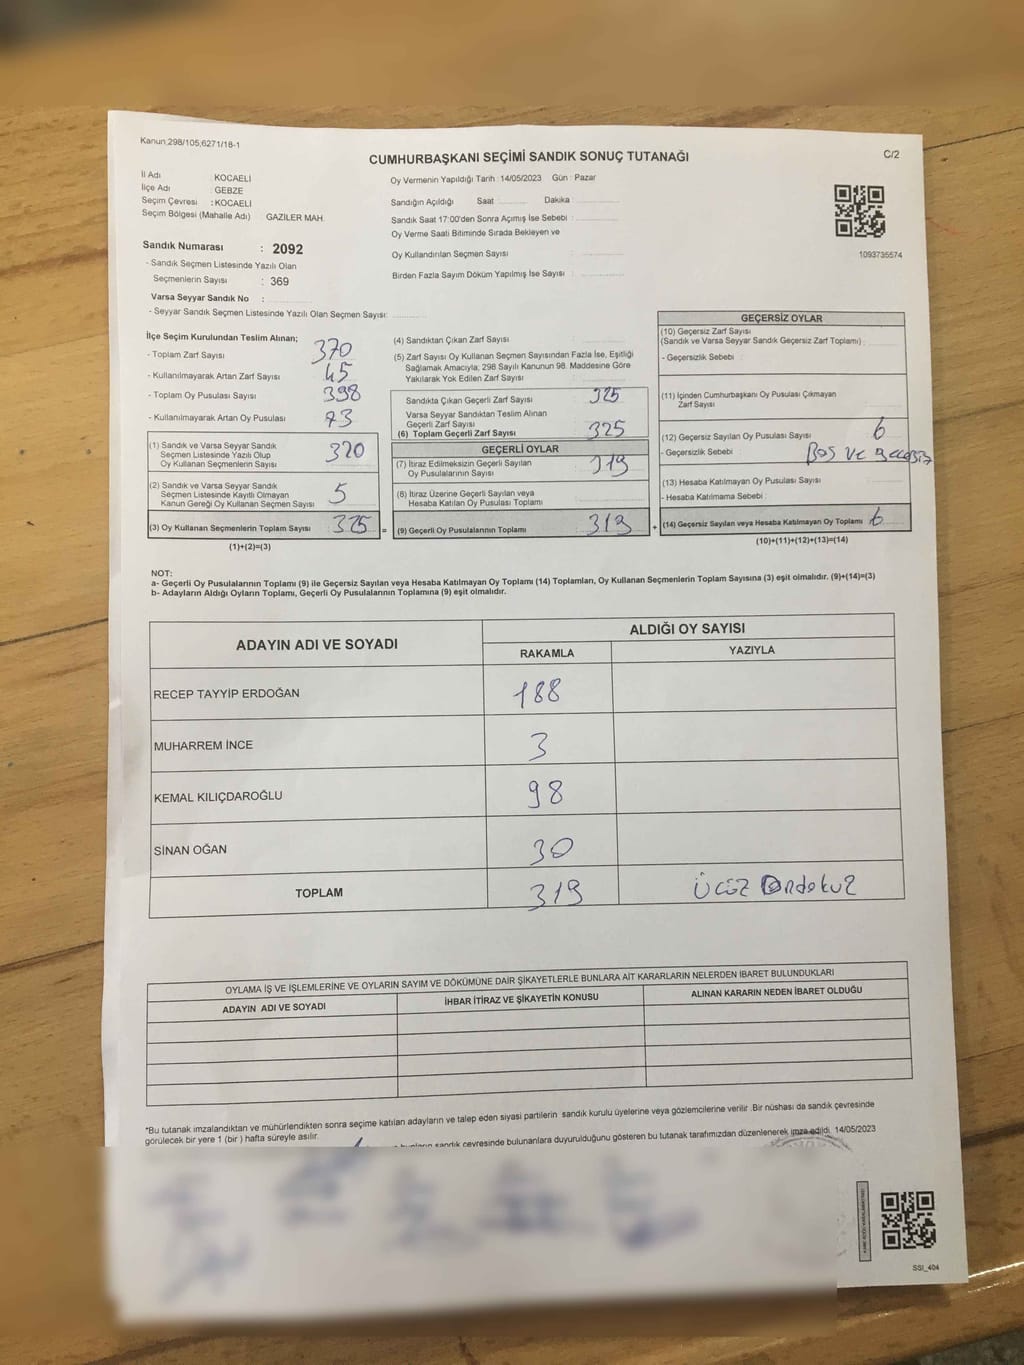 Kanun,298/105,6271/18-1
CUMHURBAŞKANI SEÇİMİ SANDIK SONUÇ TUTANAĞI
C/2
İl Adı : KOCAELİ
İlçe Adı : GEBZE
Seçim Çevresi : KOCAELİ
Seçim Bölgesi (Mahalle Adı) GAZİLER MAH.
Sandık Numarası : 2092
- Sandık Seçmen Listesinde Yazılı Olan
Seçmenlerin Sayısı : 369
Varsa Seyyar Sandık No :
- Seyyar Sandık Seçmen Listesinde Yazılı Olan Seçmen Sayısı:
Oy Vermenin Yapıldığı Tarih : 14/05/2023 Gün : Pazar
Sandığın Açıldığı Saat Dakika
Sandık Saat 17:00'den Sonra Açımış İse Sebebi :
Oy Verme Saati Bitiminde Sırada Bekleyen ve
Oy Kullandırılan Seçmen Sayısı :
Birden Fazla Sayım Döküm Yapılmış İse Sayısı :
1093735574
İlçe Seçim Kurulundan Teslim Alınan;
- Toplam Zarf Sayısı 370
- Kullanılmayarak Artan Zarf Sayısı 45
- Toplam Oy Pusulası Sayısı 398
- Kullanılmayarak Artan Oy Pusulası 73
(1) Sandık ve Varsa Seyyar Sandık
Seçmen Listesinde Yazılı Olup
Oy Kullanan Seçmenlerin Sayısı 320
(2) Sandık ve Varsa Seyyar Sandık
Seçmen Listesinde Kayıtlı Olmayan
Kanun Gereği Oy Kullanan Seçmen Sayısı 5
(3) Oy Kullanan Seçmenlerin Toplam Sayısı 325 =
(1)+(2)=(3)
(4) Sandıktan Çıkan Zarf Sayısı :
(5) Zarf Sayısı Oy Kullanan Seçmen Sayısından Fazla İse, Eşitliği
Sağlamak Amacıyla; 298 Sayılı Kanunun 98. Maddesine Göre
Yakılarak Yok Edilen Zarf Sayısı :
Sandıkta Çıkan Geçerli Zarf Sayısı 325
Varsa Seyyar Sandıktan Teslim Alınan
Geçerli Zarf Sayısı
(6) Toplam Geçerli Zarf Sayısı 325
GEÇERLİ OYLAR
(7) İtiraz Edilmeksizin Geçerli Sayılan
Oy Pusulalarının Sayısı 319
(8) İtiraz Üzerine Geçerli Sayılan veya
Hesaba Katılan Oy Pusulası Toplamı
(9) Geçerli Oy Pusulalarının Toplamı 319 +
GEÇERSİZ OYLAR
(10) Geçersiz Zarf Sayısı
(Sandık ve Varsa Seyyar Sandık Geçersiz Zarf Toplamı) :
- Geçersizlik Sebebi :
(11) İçinden Cumhurbaşkanı Oy Pusulası Çıkmayan
Zarf Sayısı
(12) Geçersiz Sayılan Oy Pusulası Sayısı : 6
- Geçersizlik Sebebi : Boş ve geçersiz
(13) Hesaba Katılmayan Oy Pusulası Sayısı :
- Hesaba Katılmama Sebebi :
(14) Geçersiz Sayılan veya Hesaba Katılmayan Oy Toplamı 6
(10)+(11)+(12)+(13)=(14)
NOT:
a- Geçerli Oy Pusulalarının Toplamı (9) ile Geçersiz Sayılan veya Hesaba Katılmayan Oy Toplamı (14) Toplamları, Oy Kullanan Seçmenlerin Toplam Sayısına (3) eşit olmalıdır. (9)+(14)=(3)
b- Adayların Aldığı Oyların Toplamı, Geçerli Oy Pusulalarının Toplamına (9) eşit olmalıdır.
ADAYIN ADI VE SOYADI
ALDIĞI OY SAYISI
RAKAMLA YAZIYLA
RECEP TAYYİP ERDOĞAN 188
MUHARREM İNCE 3
KEMAL KILIÇDAROĞLU 98
SİNAN OĞAN 30
TOPLAM 319 Ücüz Ondokuz
OYLAMA İŞ VE İŞLEMLERİNE VE OYLARIN SAYIM VE DÖKÜMÜNE DAİR ŞİKAYETLERLE BUNLARA AİT KARARLARIN NELERDEN İBARET BULUNDUKLARI
ADAYIN ADI VE SOYADI İHBAR İTİRAZ VE ŞİKAYETİN KONUSU ALINAN KARARIN NEDEN İBARET OLDUĞU
*Bu tutanak imzalandıktan ve mühürlendikten sonra seçime katılan adayların ve talep eden siyasi partilerin sandık kurulu üyelerine veya gözlemcilerine verilir. Bir nüshası da sandık çevresinde
görülecek bir yere 1 (bir ) hafta süreyle asılır.
sandık çevresinde bulunanlara duyurulduğunu gösteren bu tutanak tarafımızdan düzenlenerek imza edildi. 14/05/2023
SSI_404